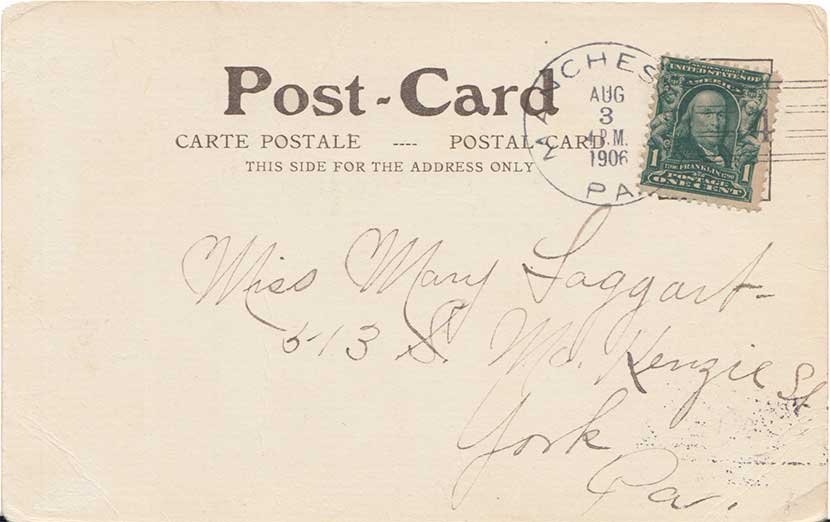 Post-Card
CARTE POSTALE ---- POSTAL CARD
THIS SIDE FOR THE ADDRESS ONLY
MANCHES
AUG
3
4 P.M.
1906
PA.
UNITED STATES OF
AMERICA
1 1706 FRANKLIN 1790 1
POSTAGE
ONE CENT
4
Miss Mary Taggart
513 S. Mc. Kenzie St
York
Pa.